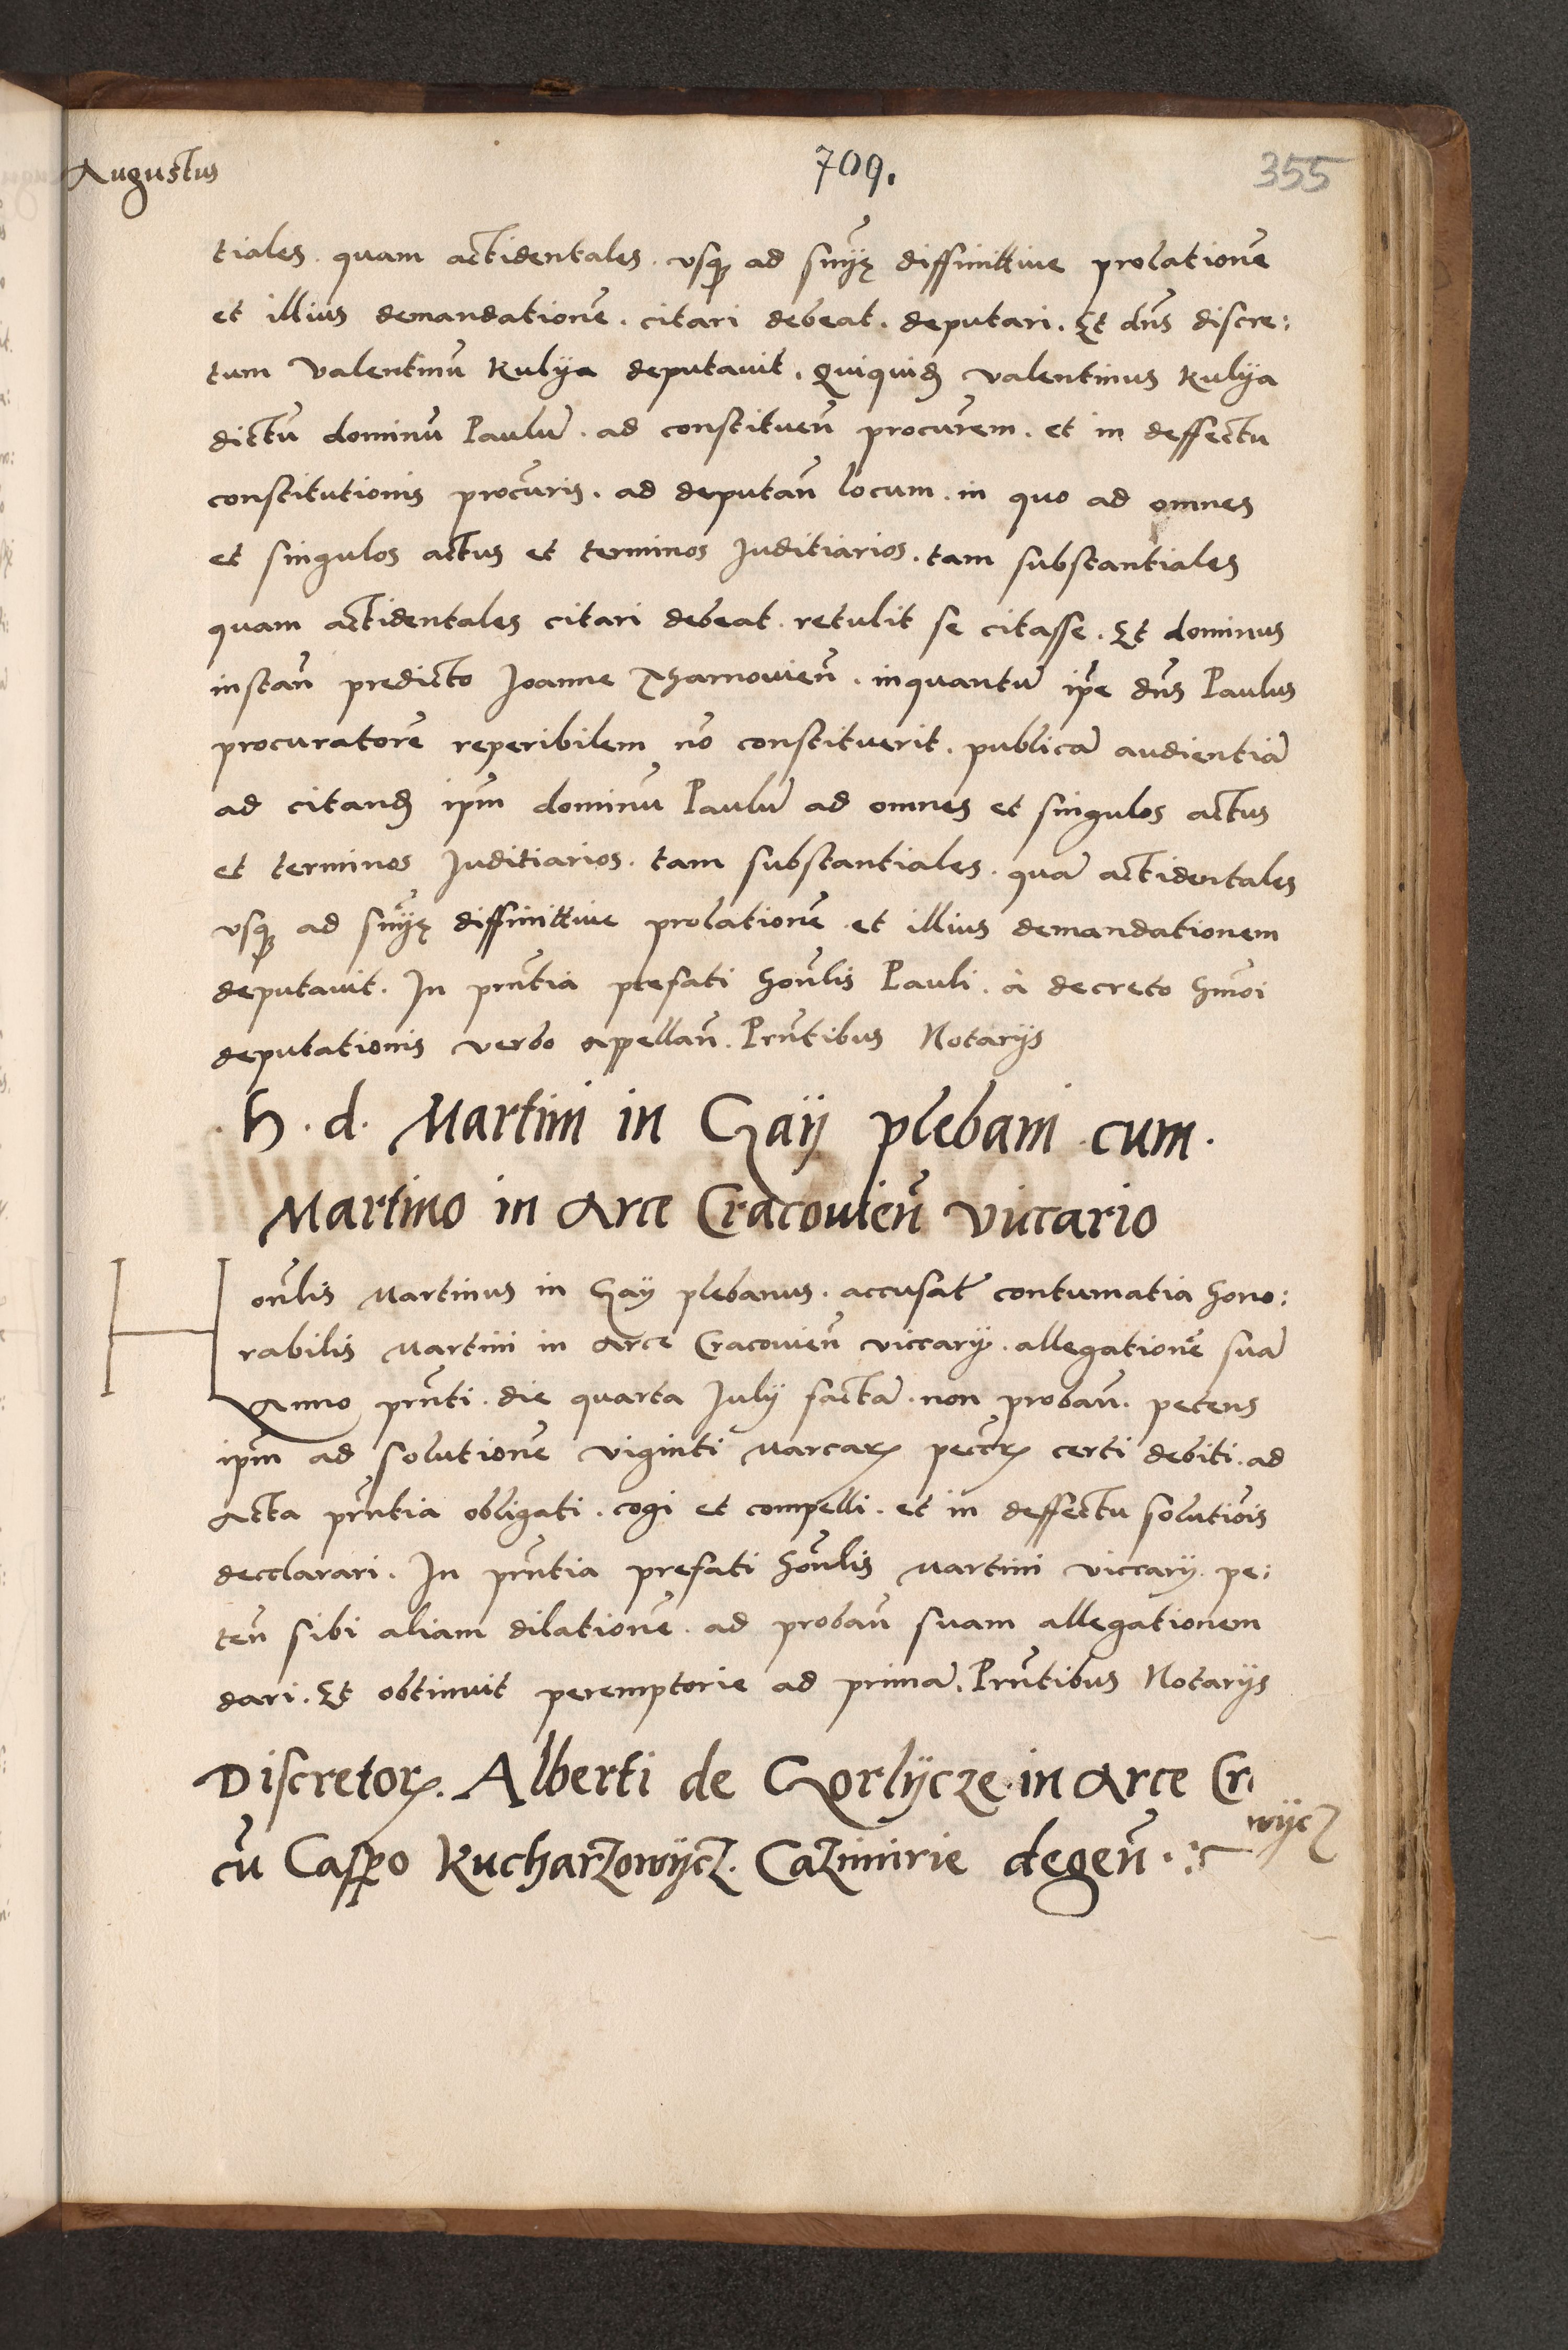 Augustus
709.
355
tiales. quam actidentales. vsq₃ ad snīę diffinitiue prolationē
et illius demandationē. citari debeat. deputari. Et dn̄s discre:
tum Valentinū Kulya deputauit. Quiquid₃ Valentinus Kulya
dictū dominū Paulū. ad constituen̄ procur̄em. et in deffectu
constitutionis procur̄is. ad deputan̄ locum. in quo ad omnes
et singulos actus et terminos Juditiarios. tam substantiales
quam actidentales citari debeat. retulit se citasse. Et dominus
instan̄ predicto Joanne Tharnouien̄. inquantū ip̄e dn̄s Paulus
procuratorē reperibilem nō constituerit. publicā audientiā
ad citand₃ ip̄m dominū Paulū ad omnes et singulos actus
et terminos Juditiarios. tam substantiales. quā actidentales
vsq₃ ad snīę diffinitiue prolationē et illius demandationem
deputauit. In pn̄tia prefati hon̄lis Pauli. à decreto hm̄oi
deputationis verbo appellan̄. Prn̄tibus Notarijs
H. d. Martini in Gaÿ plebani cum.
Martino in Arce Cracouien̄ viccario
Hon̄lis Martinus in Gaÿ plebanus. accusat̄ contumatia hono:
rabilis Martini in Arce Cracouien̄ viccarÿ. allegationē suā
Anno prn̄ti. die quarta Julÿ factā. non proban̄. petens
ip̄m ad solutionē viginti Marcaꝝ pecc̄ꝝ certi debiti. ad
Acta prn̄tia obligati. cogi et compelli. et in deffectu solutiōis
decclarari. In prn̄tia prefati hon̄lis Martini viccarÿ. pe:
ten̄ sibi aliam dilationē. ad proban̄ suam allegationem
dari. Et obtinuit peremptorie ad primā. Prn̄tibus Notarijs
Discretoꝝ. Alberti de Gorlÿcze in Arce Cr
wÿcz
cū Casp̄o Kucharzowÿcz. Cazimirie degen̄.